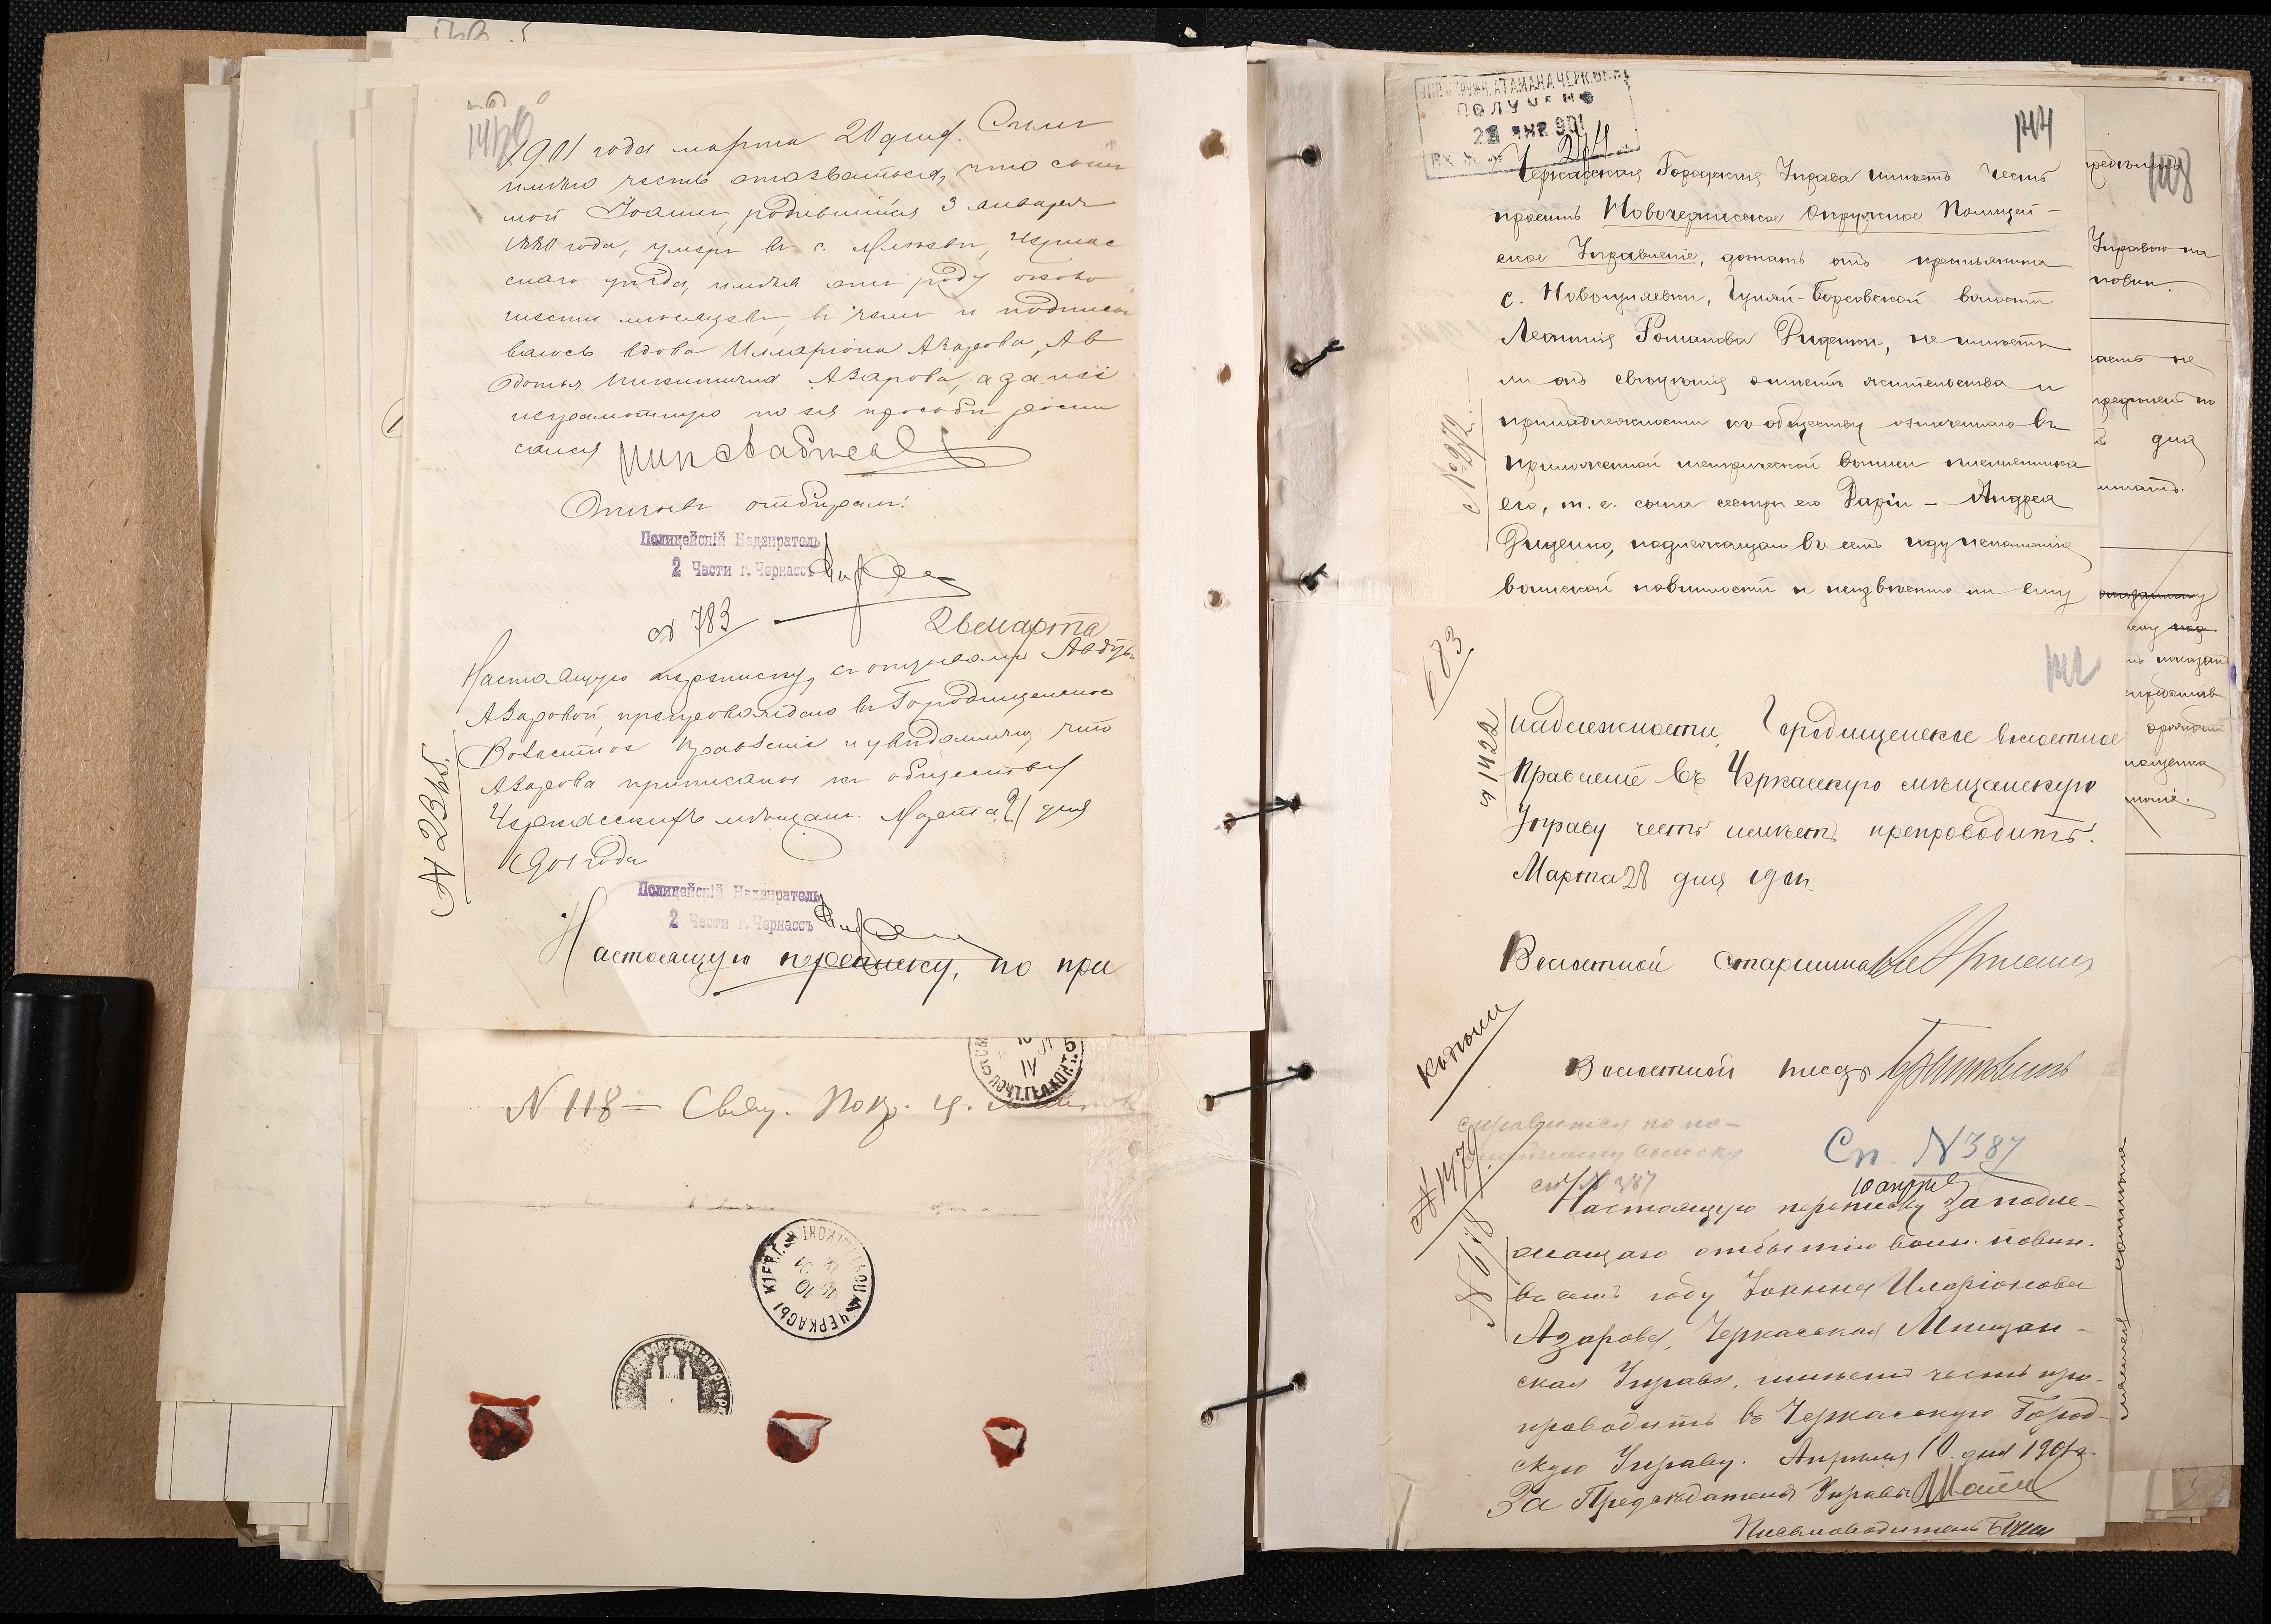 1901 года марта 20 дня. Симъ
имѣю честь отозваться, что сынъ
мой Іоаннъ, родившійся 3 января
1880 года, умеръ въ с. Мліевѣ, Черкас
скаго уѣзда, имѣя отъ роду около
шести мѣсяцевъ, въ чемъ и подписы
ваюсь вдова Илларіона Азарова, Ав
дотья Никитична Азарова, а за нее
неграмотную по ея просьбѣ роспи
сался
Отзывъ отбиралъ:
Полицейскій Надзиратель
2 Части г. Черкассъ
№ 783
26 марта
Настоящую переписку, съ отзывомъ Авдотьи
Азаровой, препровождаю въ Городищенское
Волостное Правленіе и увѣдомляю, что
Азарова приписана къ обществу
Черкасскихъ мѣщанъ. Марта 21 дня
1901 года
№ 2365.
Полицейскій Надзиратель
2 Части г. Черкассъ
Настоящую переписку, по при
N 118 = Свящ. Покр. ц.
ЧЕРКАСЫ КІЕВ. Г.
ПОЛУЧЕНО
144
Черкасская Городская Управа имѣетъ честь
просить Новочеркасское Окружное Полицей-
ское Управленіе, дознать отъ крестьянина
с. Новоселевки, Гуляй-Борисовской волости
Леонтія Романова Диденка, не имѣетъ
ли онъ свѣдѣній о мѣстѣ жительства и
принадлежности къ обществу означеннаго въ
приложенной метрической выписи племянника
его, т. е. сына сестры его Даріи – Андрея
Диденко, подлежащаго въ семъ году исполненію
воинской повинности и неизвѣстно ли ему
№ 972
Управою на
повин.
дня
683
142
№ 1422
надлежности, Городищенское волостное
Правленіе въ Черкасскую мѣщанскую
Управу честь имѣетъ препроводить.
Марта 28 дня 1901.
Волостной старшина
Волостной писарь
къ дѣлу
справиться по по-
сп. № 387
Сп. N 387
10 апрѣ
№ 1479
№ 618
Настоящую переписку за подле-
жащаго отбытію воин. повин.
въ семъ году Іоанна Иларіонова
Азарова, Черкасская Мѣщан-
ская Управа, имѣетъ честь пре-
проводить въ Черкасскую Город-
скую Управу. Апрѣля 10 дня 1901 г.
За Предсѣдателя Управы
Письмоводитель